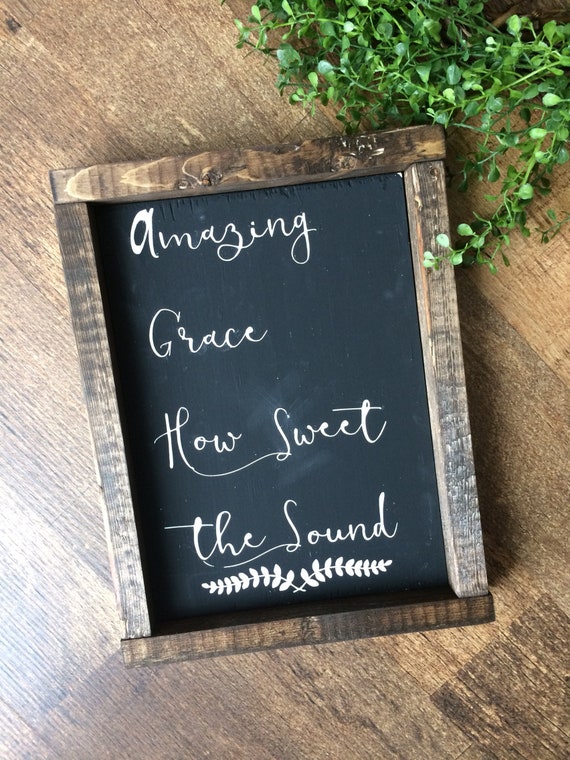 Amazing
Grace
How Sweet
the Sound